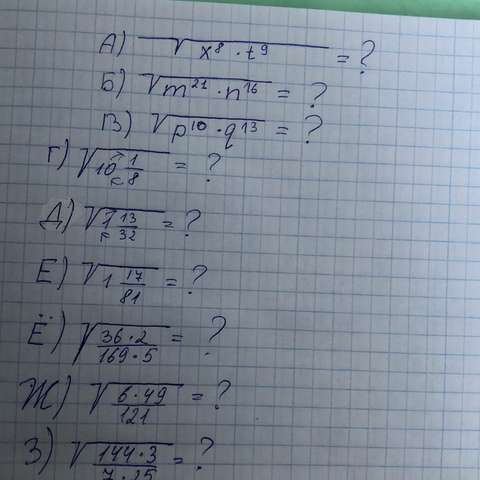 А) √x⁸·t⁹ = ?
Б) √m²¹·n¹⁶ = ?
В) √p¹⁰·q¹³ = ?
Г) √10 1/8 = ?
Д) √1 13/32 = ?
Е) √1 17/81 = ?
Ё) √36·2/169·5 = ?
Ж) √6·49/121 = ?
З) √144·3/7·25 = ?